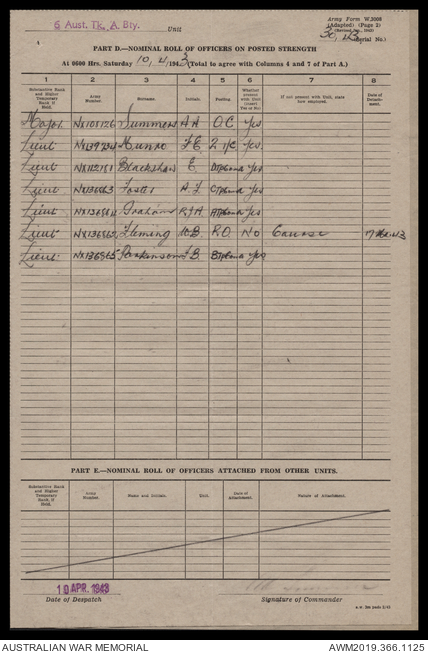 Army Form W.3008
(Adapted) (Page 2)
6 Aust. Tk. A. Bty.
Unit
Serial No.)
PART D.—NOMINAL ROLL OF OFFICERS ON POSTED STRENGTH
At 0600 Hrs. Saturday 10/4/1943 (Total to agree with Columns 4 and 7 of Part A.)
1 2 3 4 5 6 7 8
Substantive Rank and Higher Temporary Rank if Held. Army Number. Surname. Initials. Posting. Whether present with Unit (insert Yes or No) If not present with Unit, state how employed. Date of Detachment.
Major Summers A A O.C Yes
Lieut Munro F.E. 2 i/c Yes
Lieut Blackshaw E. Yes
Lieut Foster A J Yes
Lieut Graham R J A Yes
Lieut Fleming W B R.O. No
Lieut Parkinson B. Yes
PART E.—NOMINAL ROLL OF OFFICERS ATTACHED FROM OTHER UNITS.
Substantive Rank and Higher Temporary Rank if Held. Army Number. Name and Initials. Unit. Date of Attachment. Nature of Attachment.
10 APR. 1943
Date of Despatch Signature of Commander
AUSTRALIAN WAR MEMORIAL AWM2019.366.1125